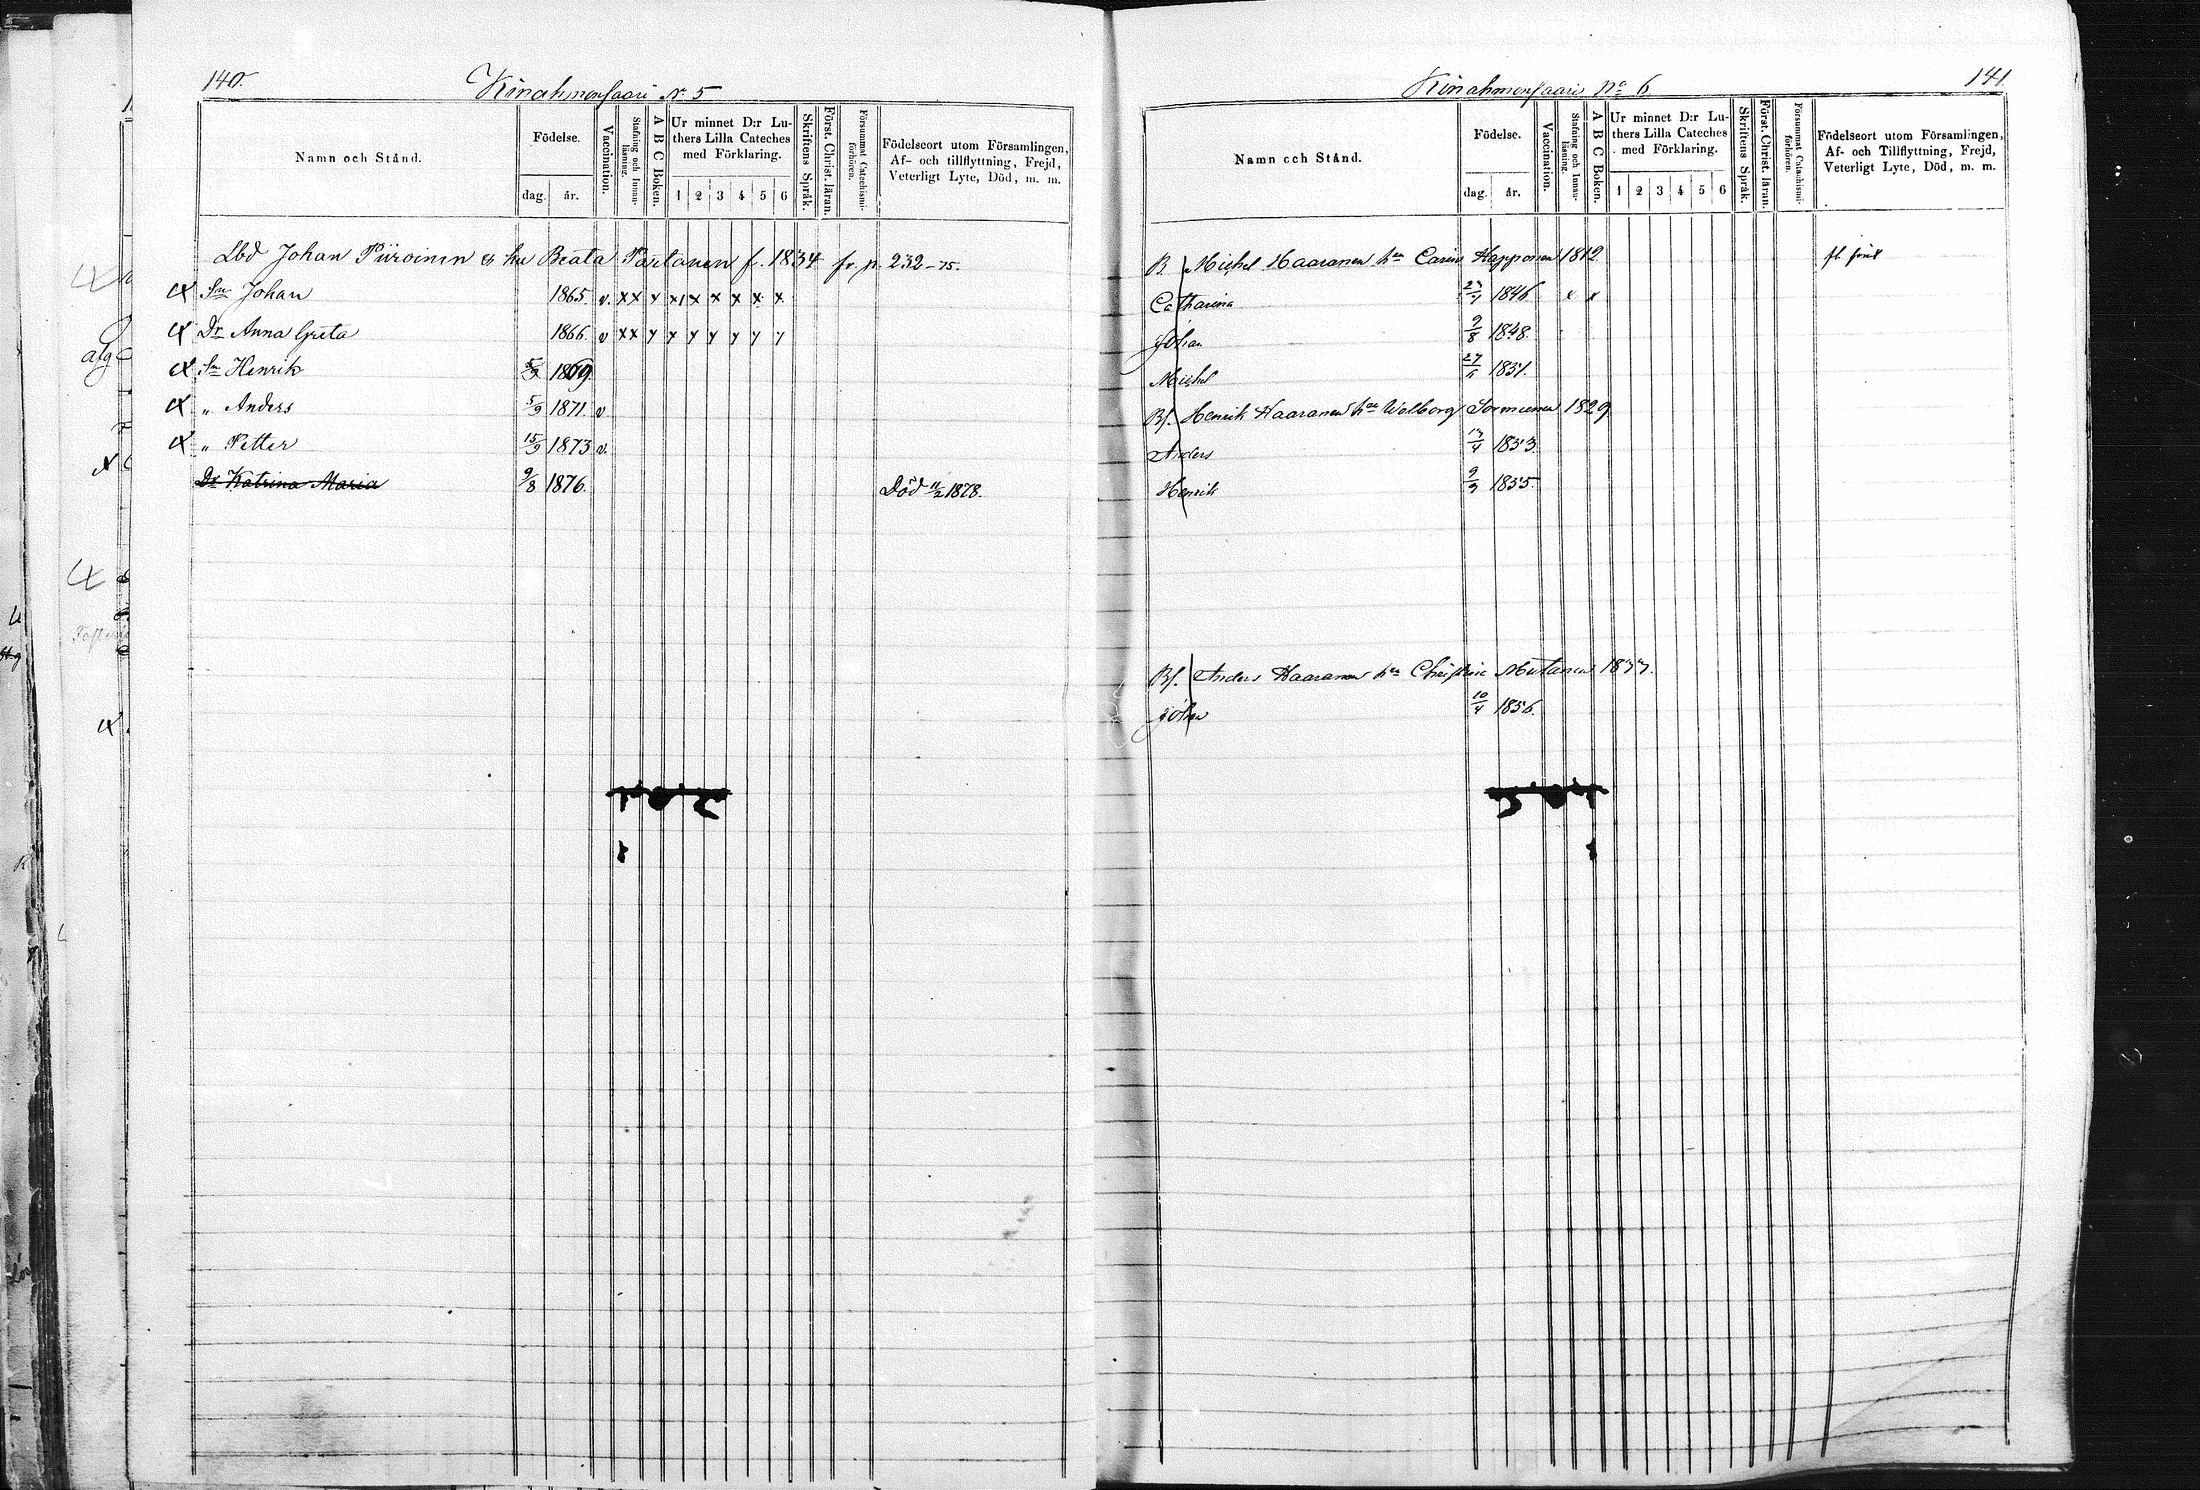 140.
Kinahmonsaari No 5
Namn och Stånd.
Födelse.
dag.
år.
Vaccination.
Stafning och Innanläsning.
A B C Boken.
Ur minnet D:r Lu-
thers Lilla Cateches
med Förklaring.
1 2 3 4 5 6
Skriftens Språk.
Först. Christ. läran.
Försummat Catechismi-
förhören.
Födelseort utom Församlingen,
Af- och tillflyttning, Frejd,
Veterligt Lyte, Död, m. m.
Lbd Johan Piiroinen & hu Beata Partanen f. 1834 fr. p. 232-75.
Sn Johan 1865. v. x x x x x x x x x
Dr Anna Greta 1866. v x x y y y y y y y
Sn Henrik 5/3 1869.
" Anders 5/9 1871. v
" Petter 15/9 1873 v.
Dr Katrina Maria 9/8 1876. Död 11/2 1878.
141
Kinahmonsaari No 6
Namn och Stånd.
Födelse.
dag.
år.
Vaccination.
Stafning och Innanläsning.
A B C Boken.
Ur minnet D:r Lu-
thers Lilla Cateches
med Förklaring.
1 2 3 4 5 6
Skriftens Språk.
Först. Christ. läran.
Försummat Catechismi-
förhören.
Födelseort utom Församlingen,
Af- och Tillflyttning, Frejd,
Veterligt Lyte, Död, m. m.
B. Michel Haaranen hu Carin Kapponen 1812
Catharina 1846 x x
Johan 9/8 1848.
Michel 1851.
Bf. Henrik Haaranen hu Walborg Sormunen 1829
Anders 1853.
Henrik 9/9 1855.
Bf. Anders Haaranen hu Christina Mutanen 1833.
Johan 10/4 1856.